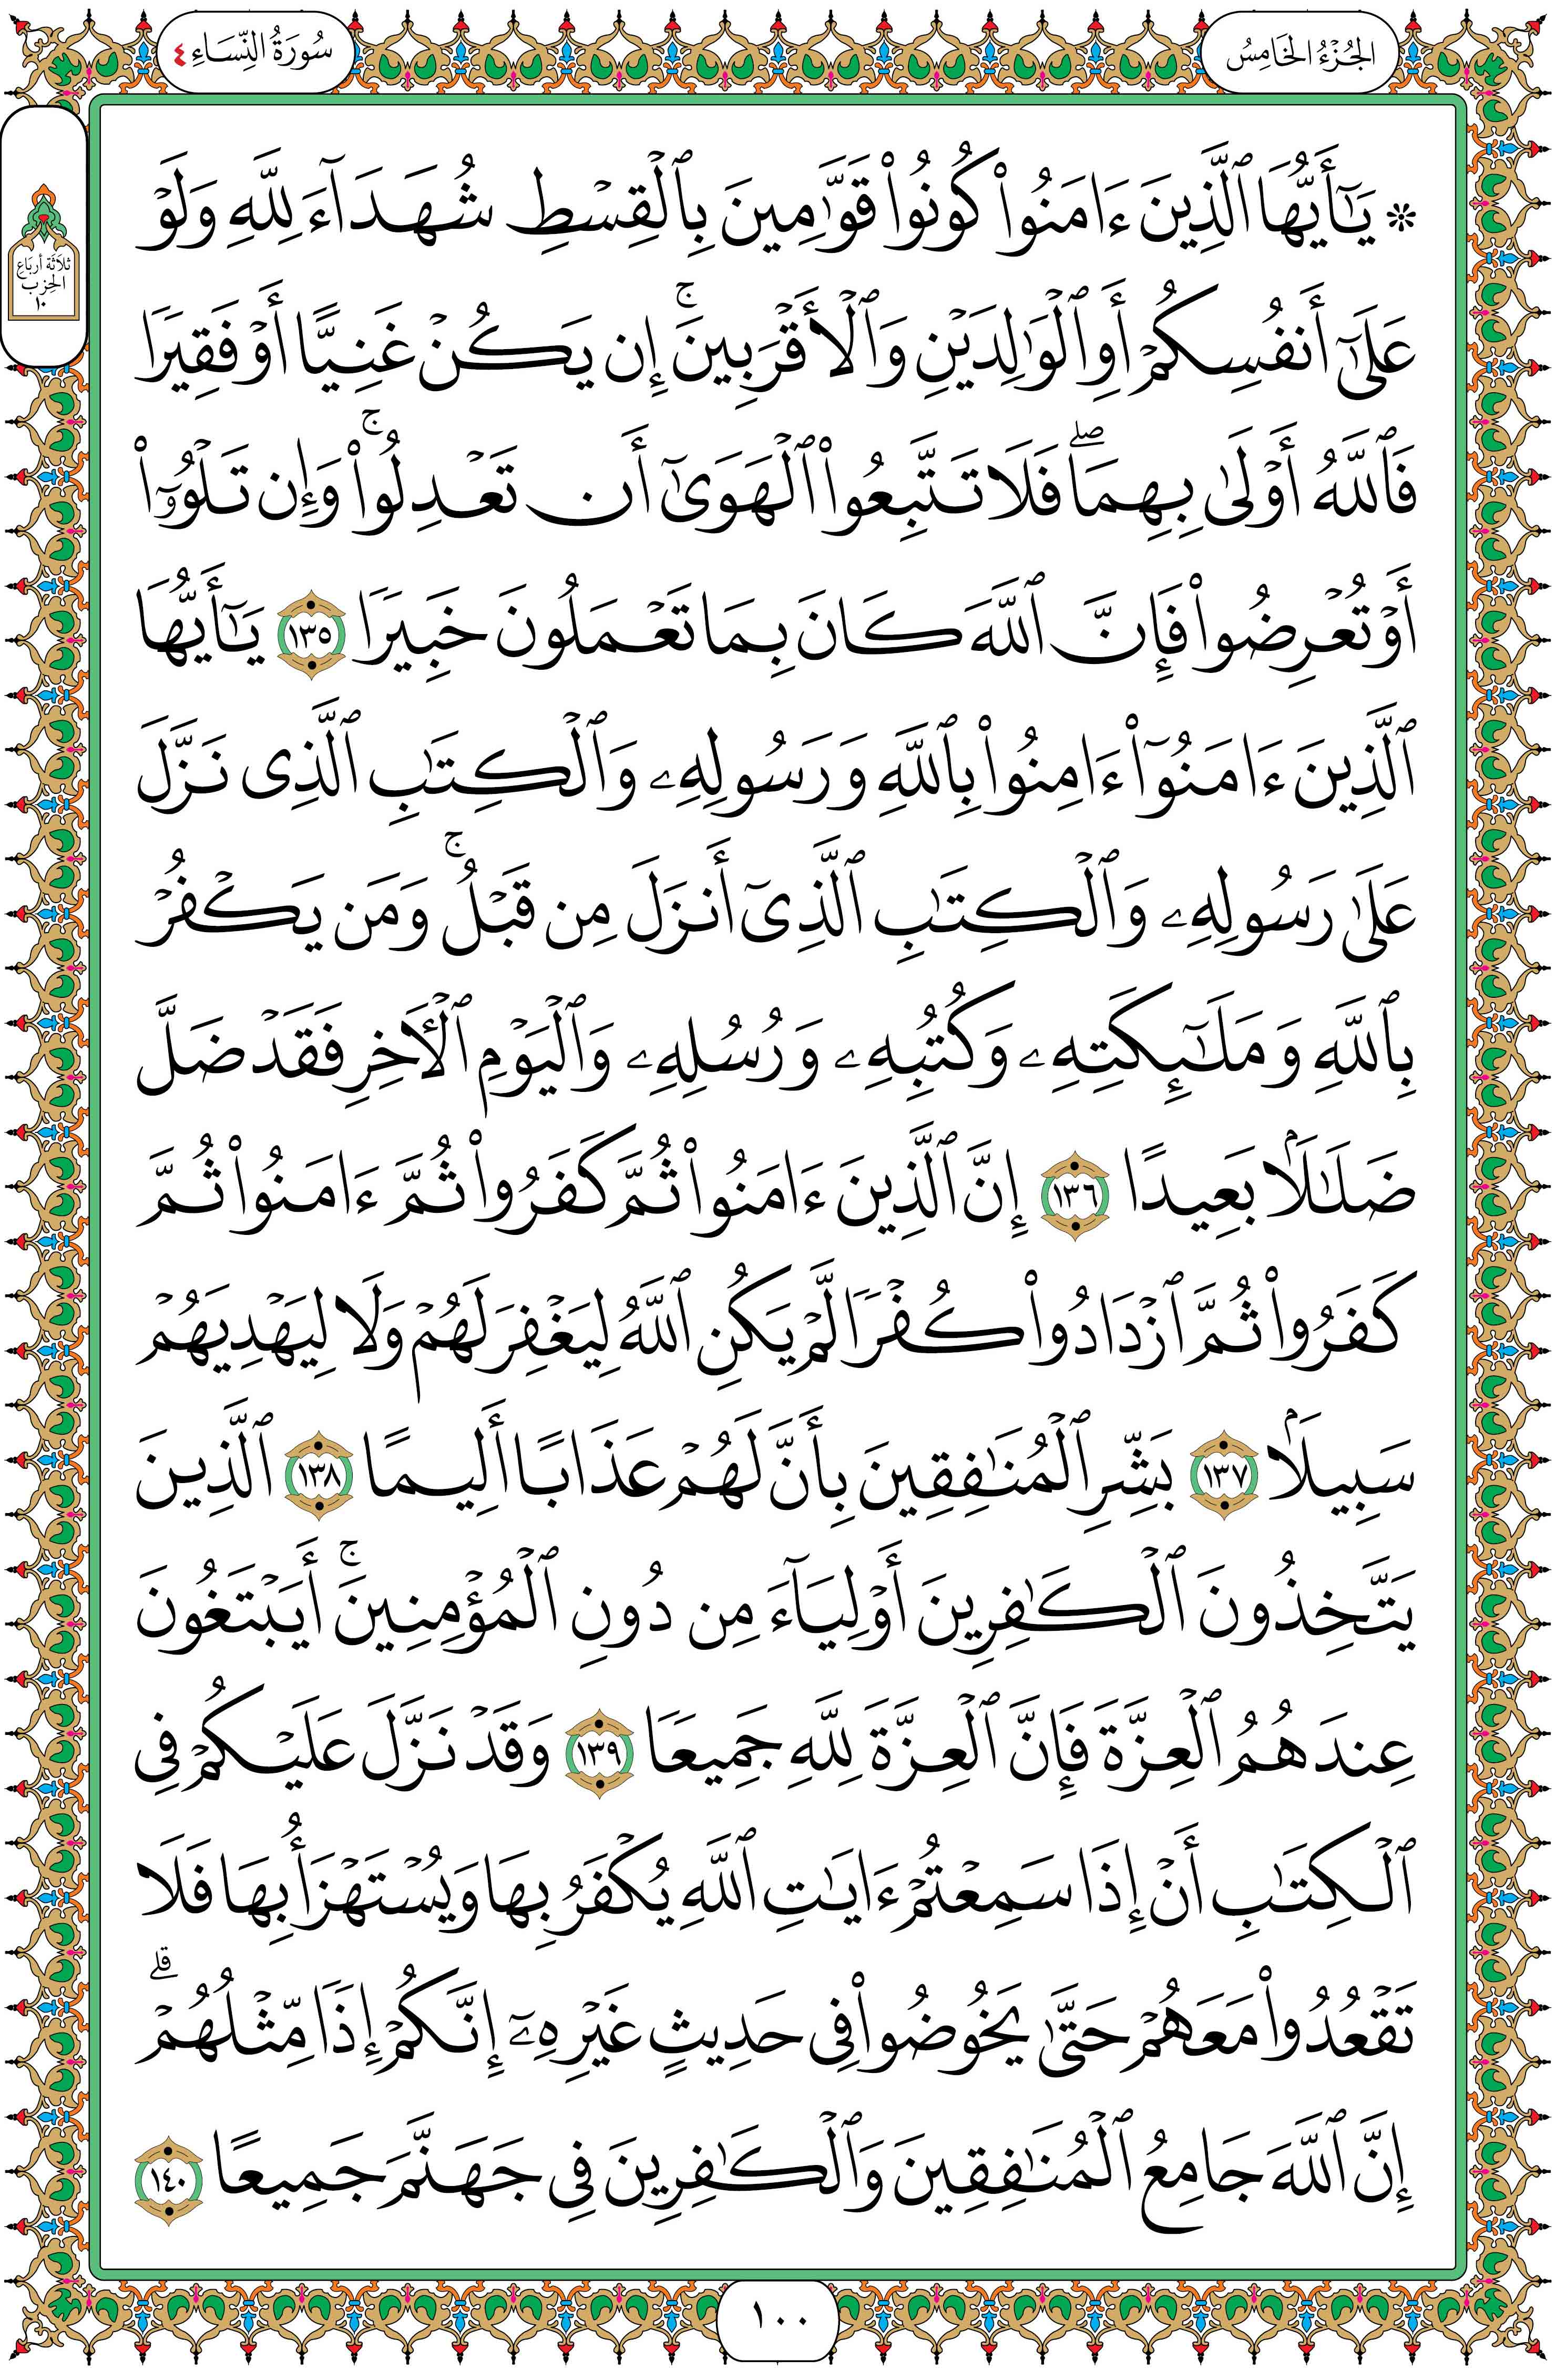 الجُزْءُ الخَامِسُ
سُورَةُ النِّسَاءِ ٤
ثلاثة أرباع
الحزب
١٠
۞ يَـٰٓأَيُّهَا ٱلَّذِينَ ءَامَنُوا۟ كُونُوا۟ قَوَّٰمِينَ بِٱلْقِسْطِ شُهَدَآءَ لِلَّهِ وَلَوْ
عَلَىٰٓ أَنفُسِكُمْ أَوِ ٱلْوَٰلِدَيْنِ وَٱلْأَقْرَبِينَ ۚ إِن يَكُنْ غَنِيًّا أَوْ فَقِيرًا
فَٱللَّهُ أَوْلَىٰ بِهِمَا ۖ فَلَا تَتَّبِعُوا۟ ٱلْهَوَىٰٓ أَن تَعْدِلُوا۟ ۚ وَإِن تَلْوُۥٓا۟
أَوْ تُعْرِضُوا۟ فَإِنَّ ٱللَّهَ كَانَ بِمَا تَعْمَلُونَ خَبِيرًا ١٣٥ يَـٰٓأَيُّهَا
ٱلَّذِينَ ءَامَنُوٓا۟ ءَامِنُوا۟ بِٱللَّهِ وَرَسُولِهِۦ وَٱلْكِتَـٰبِ ٱلَّذِى نَزَّلَ
عَلَىٰ رَسُولِهِۦ وَٱلْكِتَـٰبِ ٱلَّذِىٓ أَنزَلَ مِن قَبْلُ ۚ وَمَن يَكْفُرْ
بِٱللَّهِ وَمَلَـٰٓئِكَتِهِۦ وَكُتُبِهِۦ وَرُسُلِهِۦ وَٱلْيَوْمِ ٱلْـَٔاخِرِ فَقَدْ ضَلَّ
ضَلَـٰلًۢا بَعِيدًا ١٣٦ إِنَّ ٱلَّذِينَ ءَامَنُوا۟ ثُمَّ كَفَرُوا۟ ثُمَّ ءَامَنُوا۟ ثُمَّ
كَفَرُوا۟ ثُمَّ ٱزْدَادُوا۟ كُفْرًا لَّمْ يَكُنِ ٱللَّهُ لِيَغْفِرَ لَهُمْ وَلَا لِيَهْدِيَهُمْ
سَبِيلًۢا ١٣٧ بَشِّرِ ٱلْمُنَـٰفِقِينَ بِأَنَّ لَهُمْ عَذَابًا أَلِيمًا ١٣٨ ٱلَّذِينَ
يَتَّخِذُونَ ٱلْكَـٰفِرِينَ أَوْلِيَآءَ مِن دُونِ ٱلْمُؤْمِنِينَ ۚ أَيَبْتَغُونَ
عِندَهُمُ ٱلْعِزَّةَ فَإِنَّ ٱلْعِزَّةَ لِلَّهِ جَمِيعًا ١٣٩ وَقَدْ نَزَّلَ عَلَيْكُمْ فِى
ٱلْكِتَـٰبِ أَنْ إِذَا سَمِعْتُمْ ءَايَـٰتِ ٱللَّهِ يُكْفَرُ بِهَا وَيُسْتَهْزَأُ بِهَا فَلَا
تَقْعُدُوا۟ مَعَهُمْ حَتَّىٰ يَخُوضُوا۟ فِى حَدِيثٍ غَيْرِهِۦٓ ۚ إِنَّكُمْ إِذًا مِّثْلُهُمْ ۗ
إِنَّ ٱللَّهَ جَامِعُ ٱلْمُنَـٰفِقِينَ وَٱلْكَـٰفِرِينَ فِى جَهَنَّمَ جَمِيعًا ١٤٠
١٠٠